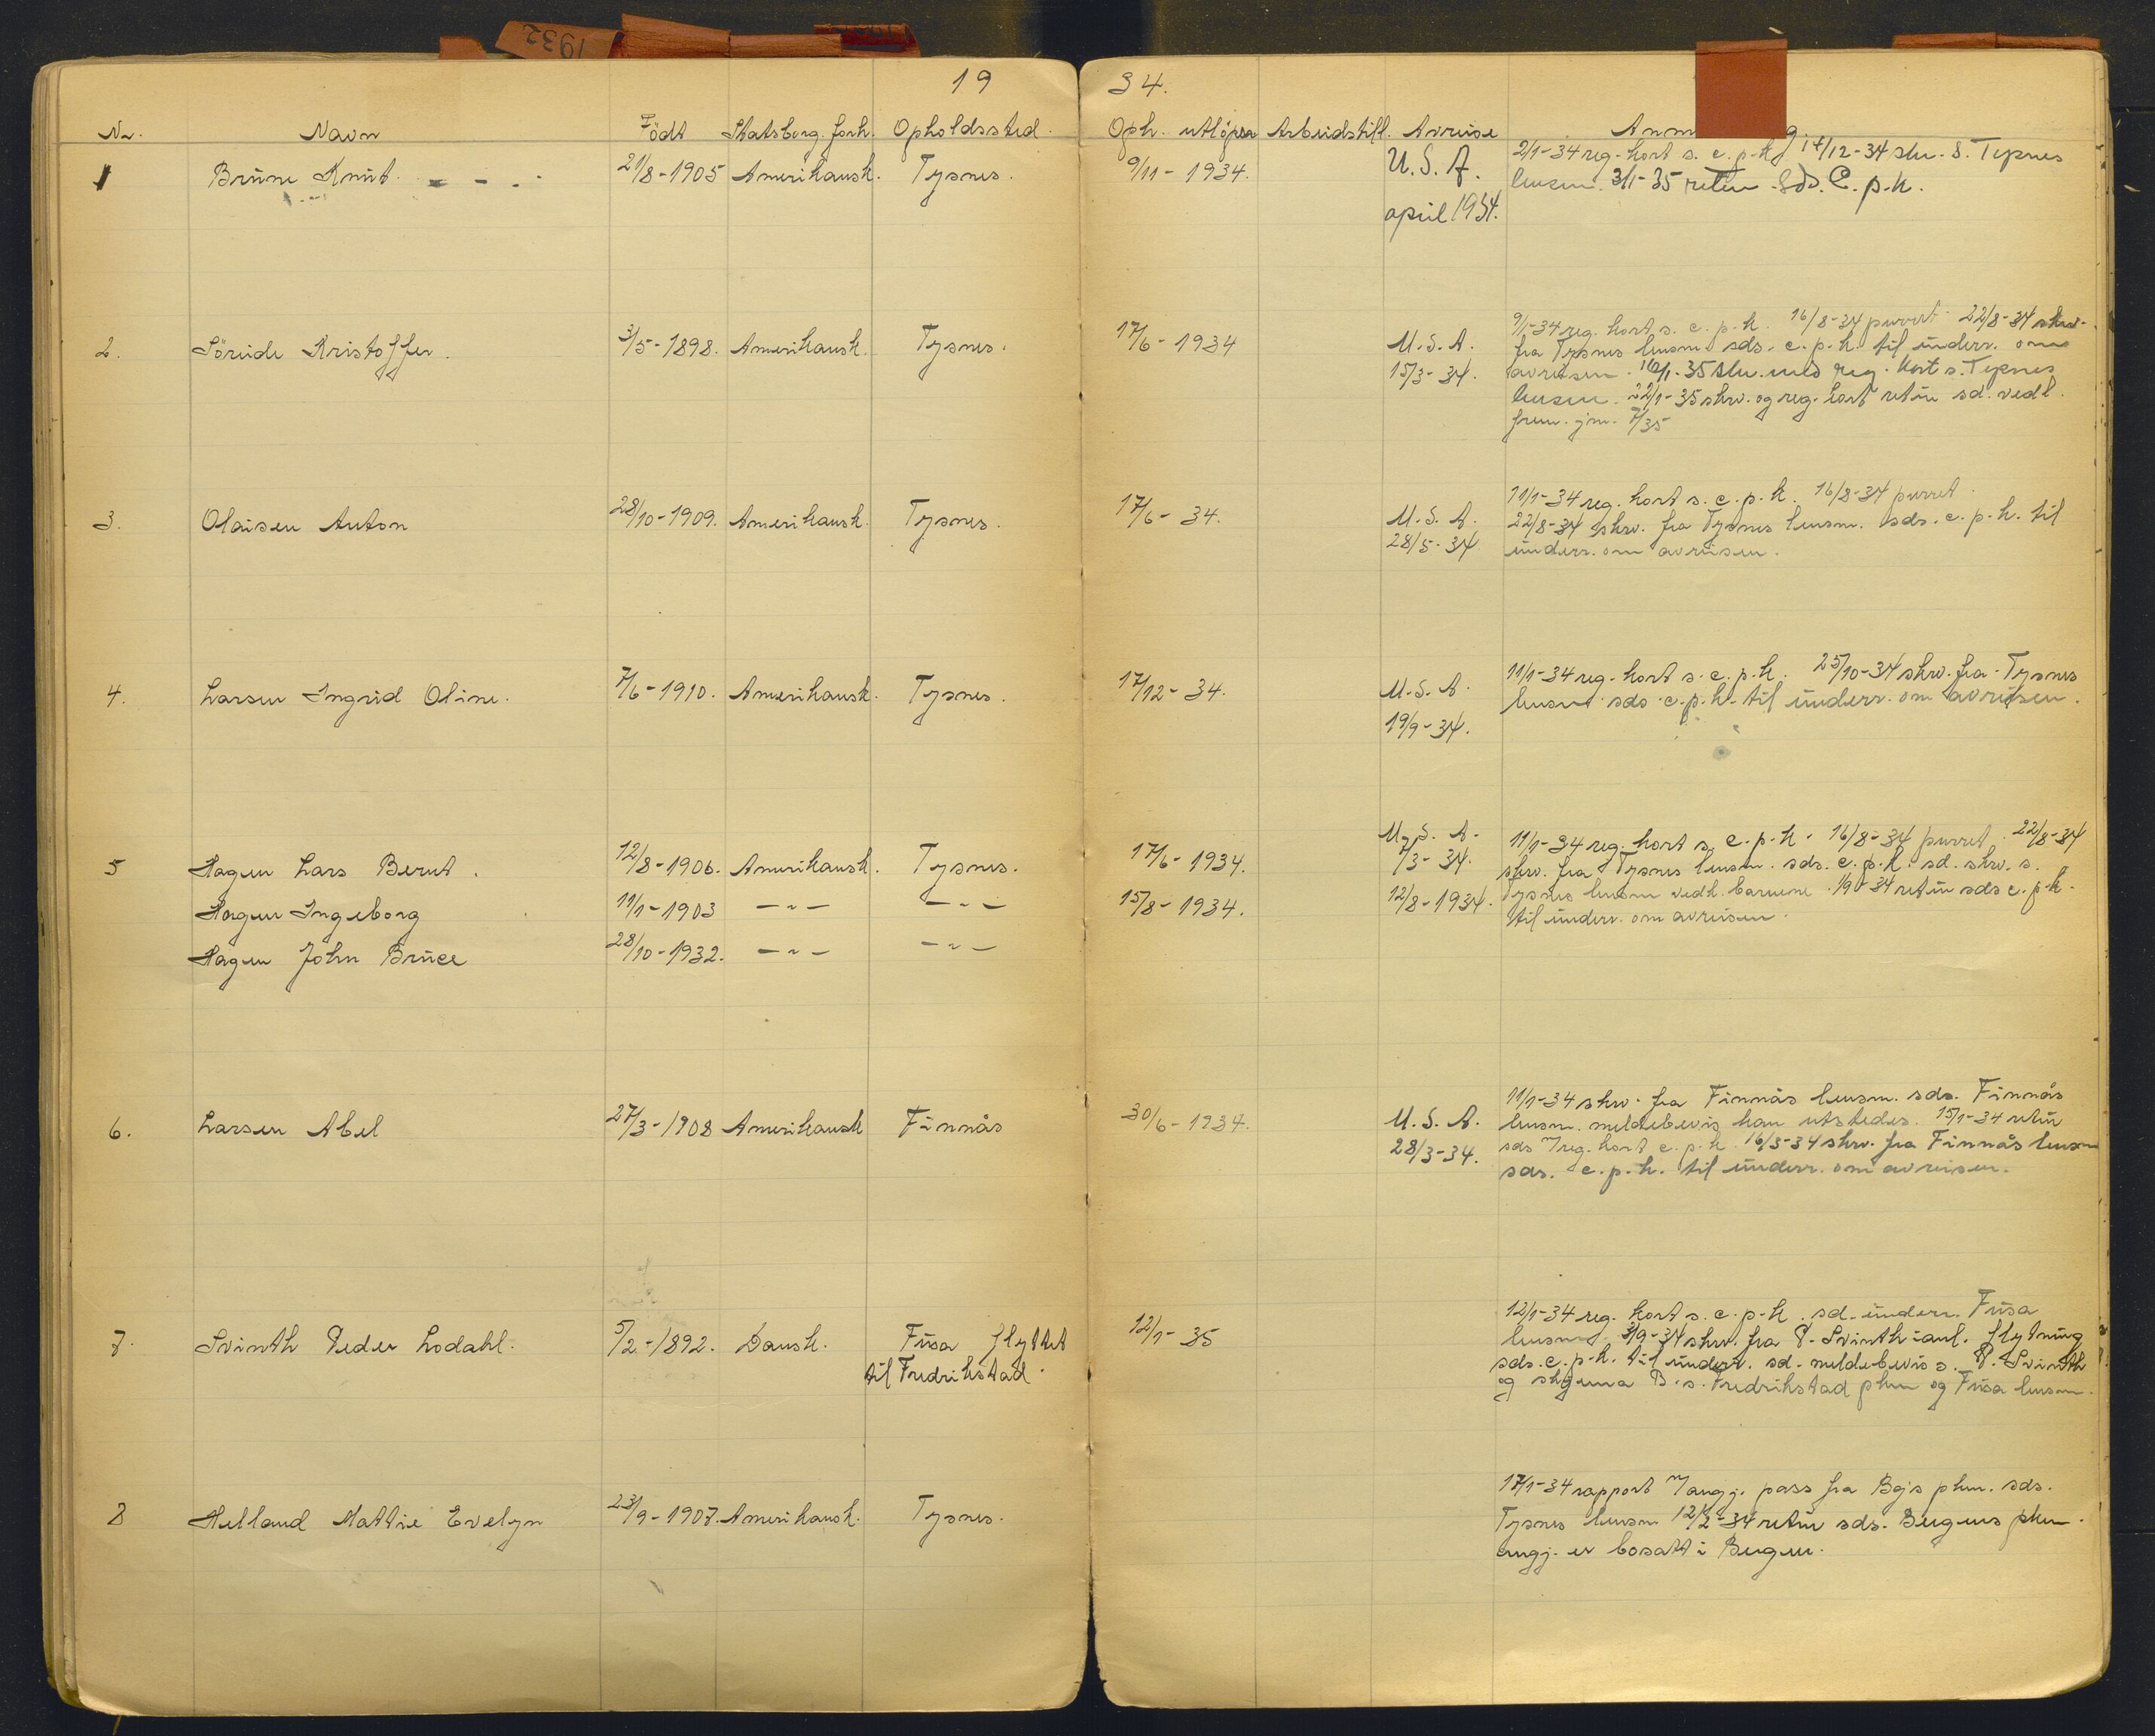 1932
19 34.
Nr. Navn Födt Statsborg. forh. Opholdssted. Oph. utlöper Arbeidstill. Avreise Anm
1 Brüne Knut. 21/8-1905 Amerikansk. Tysnes. 9/11-1934. U.S.A. 2/1-34 reg. kort s. c.p.k. 17/12-34 skr. s. Tysnes
april 1934. lensm. 3/1-35 retur sds. C.p.k.
2. Söreide Kristoffer. 3/5-1898. Amerikansk. Tysnes. 17/6-1934 U.S.A. 9/1-34 reg. kort s. c.p.k. 16/8-34 purret. 22/8-34 skr.
fra Tysnes lensm. sds. c.p.k. til underr. om
15/3-34. avreisen. 16/1-35 skr. med reg. kort s. Tysnes
lensm. 22/1-35 skr. og reg. kort retur sd. vedl.
frem. jnr. 7/35
3. Olaisen Anton 28/10-1909. Amerikansk. Tysnes. 17/6-34. U.S.A. 11/1-34 reg. kort s. c.p.k. 16/8-34 purret.
22/8-34 skr. fra Tysnes lensm. sds. c.p.k. til
28/5-34 underr. om avreisen.
4. Larsen Ingrid Oline. 7/6-1910. Amerikansk. Tysnes. 17/12-34. U.S.A. 11/1-34 reg. kort s. c.p.k. 25/10-34 skr. fra Tysnes
19/9-34. lensm. sds. c.p.k. til underr. om avreisen.
5 Hagen Lars Bernt. 12/8-1906. Amerikansk. Tysnes. 17/6-1934. U.S.A. 7/3-34. 11/1-34 reg. kort s. c.p.k. 16/8-34 purret. 22/8-34
skr. fra Tysnes lensm. sds. c.p.k. sd. skr. s.
Hagen Ingeborg 11/1-1903 —"— —"— 15/8-1934. 12/8-1934. Tysnes lensm vedk. barnene. 1/9-34 retur sds c.p.k.
til underr. om avreisen.
Hagen John Brüce 28/10-1932. —"— —"—
6. Larsen Abel 27/3-1908 Amerikansk Finnås 30/6-1934. U.S.A. 11/1-34 skr. fra Finnås lensm. sds. Finnås
lensm. meldebevis kan utstedes. 15/1-34 retur
28/3-34. sds reg. kort c.p.k. 16/3-34 skr. fra Finnås lensm
sds. c.p.k. til underr. om avreisen.
7. Svinth Peder Lodahl. 5/2-1892. Dansk. Füsa flyttet 12/1-35 12/1-34 reg. kort s. c.p.k. sd. underr. Füsa
til Fredrikstad. lensm. 3/9-34 skr. fra P. Svinth anl. flytning
sds. c.p.k. til underr. sd. meldebevis s. P. Svinth
og skjema B. s. Fredrikstad pkm og Füsa lensm.
8 Helland Mattie Evelyn 23/9-1907. Amerikansk. Tysnes. 17/1-34 rapport angj. pass fra Bgs pkm. sds.
Tysnes lensm 12/2-34 retur sds. Bergens pkm.
angj. er bosatt i Bergen.